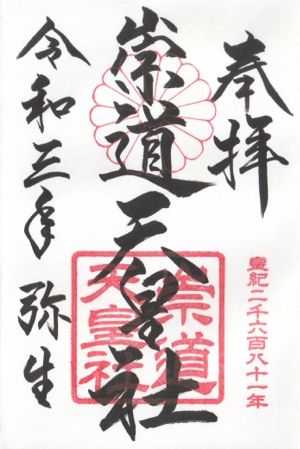 奉拝
皇紀二千六百八十一年
崇道天皇社
崇道
天皇社
令和三年 弥生